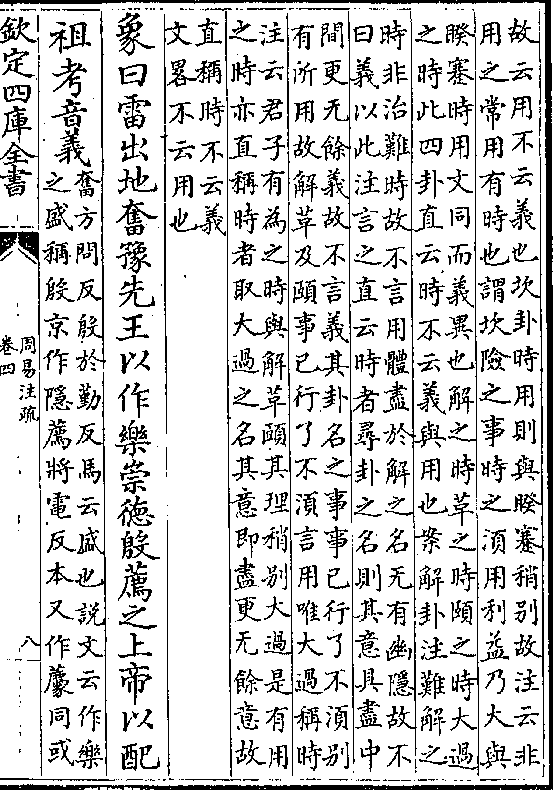 故云用不云義也坎卦時用則與睽蹇稍別故注云非
用之常用有時也謂坎險之事時之湏用利益乃大與
睽蹇時用文同而義異也解之時草之時頤之時大過
之時此四卦直云時不云義與用也案解卦注難解之
時非治難時故不言用體盡於解之名无有幽隱故不
曰義以此注言之直云時者尋卦之名則其意具盡中
間更无餘義故不言義其卦名之事事已行了不湏別
有所用故解草及頤事已行了不湏言用唯大過稱時
注云君子有為之時與解草頤其理稍別大過是有用
之時亦直稱時者取大過之名其意即盡更无餘意故
直稱時不云義
文畧不云用也
象曰雷出地奮豫先王以作樂崇德殷薦之上帝以配
祖考音義奮方問反殷於勤反馬云盛也說文云作樂
之盛稱殷京作隱薦將電反本又作藨同或
欽定四庫全書
周易注疏
卷四
八